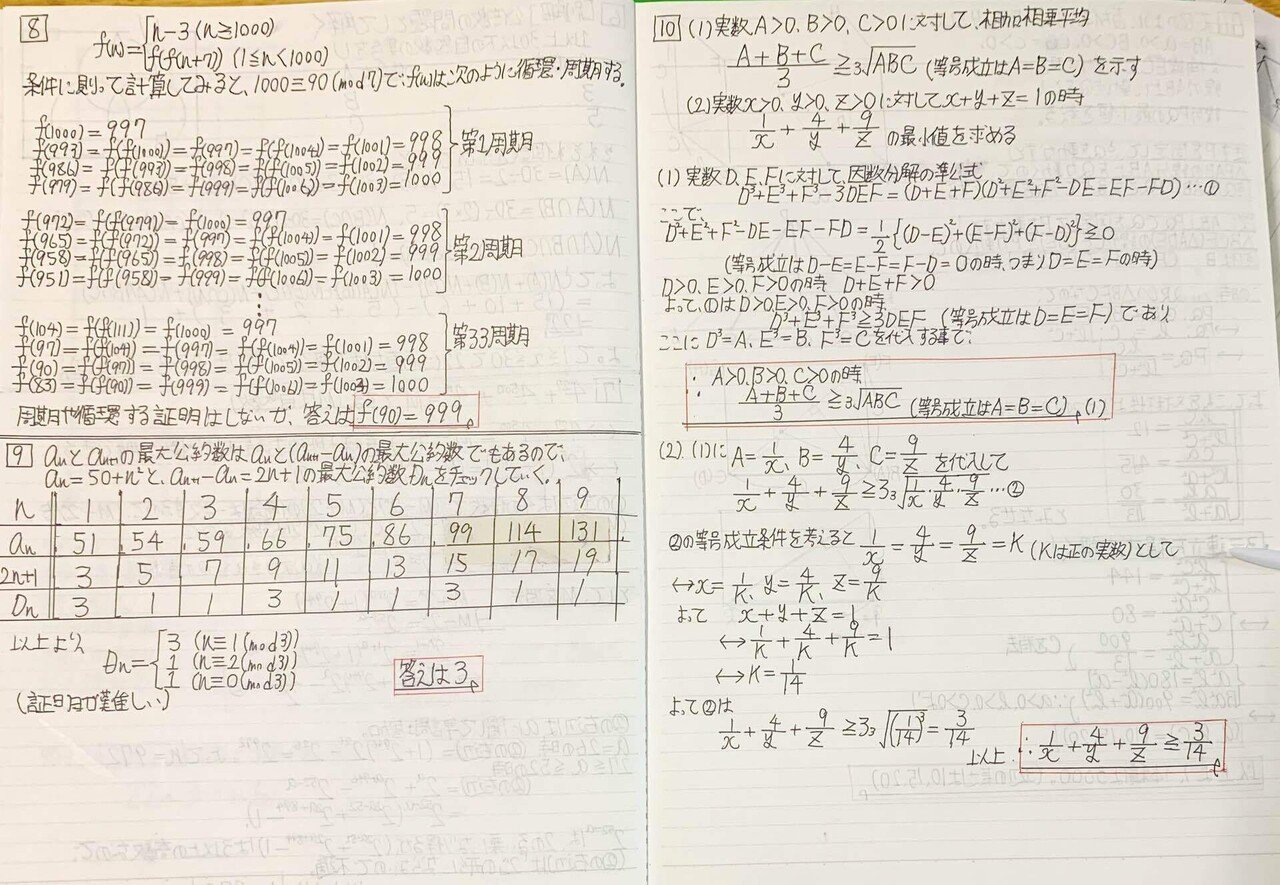 8
f(n)={n-3 (n≧1000)
f(f(n+7)) (1≦n<1000)
条件に則って計算してみると、1000≡90 (mod7)で、f(n)は次のように循環・周期する。
f(1000)=997
f(993)=f(f(1000))=f(997)=f(f(1004))=f(1001)=998
f(986)=f(f(993))=f(998)=f(f(1005))=f(1002)=999
f(979)=f(f(986))=f(999)=f(f(1006))=f(1003)=1000
第1周期
f(972)=f(f(979))=f(1000)=997
f(965)=f(f(972))=f(997)=f(f(1004))=f(1001)=998
f(958)=f(f(965))=f(998)=f(f(1005))=f(1002)=999
f(951)=f(f(958))=f(999)=f(f(1006))=f(1003)=1000
第2周期
⋮
f(104)=f(f(111))=f(1000)=997
f(97)=f(f(104))=f(997)=f(f(1004))=f(1001)=998
f(90)=f(f(97))=f(998)=f(f(1005))=f(1002)=999
f(83)=f(f(90))=f(999)=f(f(1006))=f(1003)=1000
第33周期
周期や循環する証明はしないが、答えは f(90)=999
9 anとan+1の最大公約数はanと(an+1-an)の最大公約数でもあるので、
an=50+n²と、an+1-an=2n+1の最大公約数Dnをチェックしていく。
n 1 2 3 4 5 6 7 8 9
an 51 54 59 66 75 86 99 114 131
2n+1 3 5 7 9 11 13 15 17 19
Dn 3 1 1 3 1 1 3 1 1
以上より、
Dn={3 (n≡1(mod3))
1 (n≡2(mod3))
1 (n≡0(mod3))
答えは3
(証明が難しい)
10 (1)実数A>0、B>0、C>0に対して、相加相乗平均
(A+B+C)/3≧3√ABC (等号成立はA=B=C)を示す
(2)実数x>0、y>0、z>0に対してx+y+z=1の時
1/x+4/y+9/z の最小値を求める
(1) 実数D、E、Fに対して、因数分解の準公式
D³+E³+F³-3DEF=(D+E+F)(D²+E²+F²-DE-EF-FD)…①
ここで、
D²+E²+F²-DE-EF-FD=1/2{(D-E)²+(E-F)²+(F-D)²}≧0
(等号成立はD-E=E-F=F-D=0の時、つまりD=E=Fの時)
D>0、E>0、F>0の時 D+E+F>0
よって、①はD>0、E>0、F>0の時
D³+E³+F³≧3DEF (等号成立はD=E=F)であり
ここにD³=A、E³=B、F³=Cを代入する事で、
∴ A>0、B>0、C>0の時
(A+B+C)/3≧3√ABC (等号成立はA=B=C) (1)
(2). (1)にA=1/x、B=4/y、C=9/zを代入して
1/x+4/y+9/z≧3 3√1/x・4/y・9/z…②
②の等号成立条件を考えると 1/x=4/y=9/z=K (Kは正の実数)として
↔x=1/K、y=4/K、z=9/K
よって x+y+z=1
↔1/K+4/K+9/K=1
↔K=1/14
よって②は
1/x+4/y+9/z≧3 3√(1/14)³=3/14
以上
∴1/x+4/y+9/z≧3/14